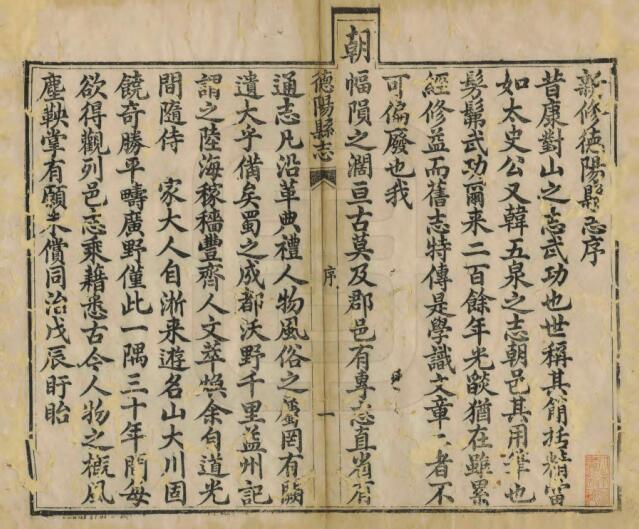 新修德陽縣志序
昔康對山之志武功也世稱其簡括精當
如太史公又韓五泉之志朝邑其用筆也
髣髴武功爾來二百餘年光燄猶在雖累
經修益而舊志特傳是學識文章二者不
可偏廢也我
朝幅隕之濶亘古莫及郡邑有專志直省有
德陽縣志
序
一
通志凡沿革典禮人物風俗之屬罔有闕
遺大乎備矣蜀之成都沃野千里益州記
謂之陸海稼穡豐齊人文萃煥余自道光
間隨侍 家大人自浙来遊名山大川固
饒奇勝平疇廣野僅此一隅三十年間每
欲得觀列邑志乘藉悉古今人物之概風
塵鞅掌有願未償同治戊辰盱眙